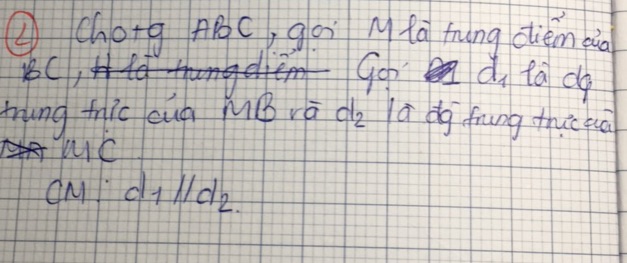 ② Cho tg ABC, gọi M là trung điểm của
BC, H là trung điểm Gọi d₁ là đg
trung trực của MB và d₂ là đg trung trực của
MC
CM: d₁ // d₂.